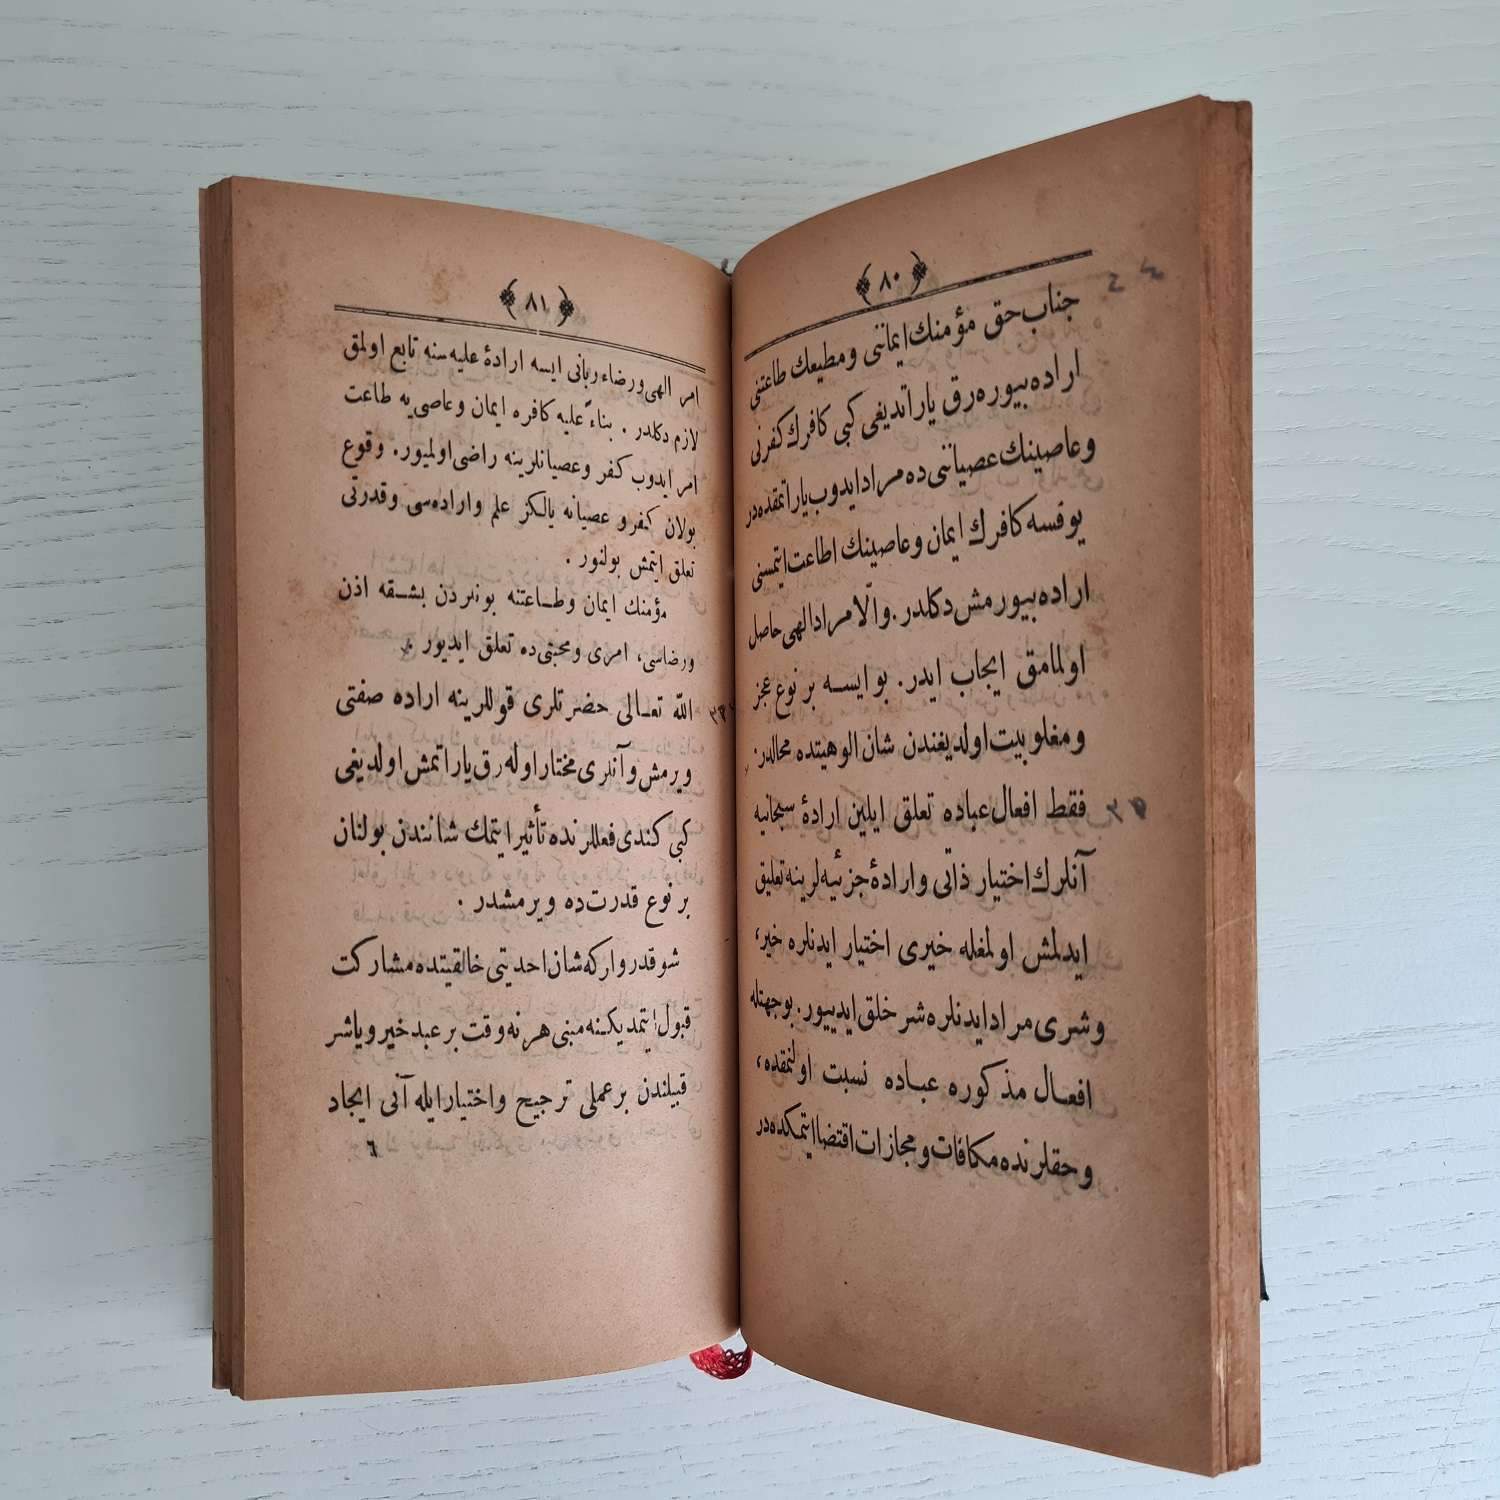 ﴿ ٨٠ ﴾
جناب حق مؤمنك ايماننى و مطيعك طاعتنى
اراده بيوره‌رق ياراتديغى كبى كافرك كفرنى
و عاصينك عصياننى ده مراد ايدوب ياراتمقده در
يوقسه كافرك ايمان و عاصينك اطاعت ايتمسنى
اراده بيورمش دكلدر . والّا مراد الهى حاصل
اولمامق ايجاب ايدر . بو ايسه بر نوع عجز
و مغلوبيت اولديغندن شان الوهيتده محالدر .
فقط افعال عباده تعلق ايلين ارادۀ سبحانيه
آنلرك اختيار ذاتى و ارادۀ جزئيه لرينه تعليق
ايدلمش اولمغله خيرى اختيار ايدنلره خير ،
و شرى مراد ايدنلره شر خلق ايدييور . بوجهتله
افعال مذكوره عباده نسبت اولنمقده ،
و حقلرنده مكافات و مجازات اقتضا ايتمكده در
﴿ ٨١ ﴾
امر الهى و رضاء ربانى ايسه ارادۀ عليه سنه تابع اولمق
لازم دكلدر . بناءً عليه كافره ايمان و عاصى يه طاعت
امر ايدوب كفر و عصيانلرينه راضى اولميور . وقوع
بولان كفر و عصيانه يالكز علم و اراده سى و قدرتى
تعلق ايتمش بولنور .
مؤمنك ايمان و طاعتنه بونلردن بشقه اذن
و رضاسى ، امرى و محبتى ده تعلق ايديور .
الله تعالى حضرتلرى قوللرينه اراده صفتى
ويرمش و آنلرى مختار اوله رق ياراتمش اولديغى
كبى كندى فعللرنده تأثير ايتمك شانندن بولنان
بر نوع قدرت ده ويرمشدر .
شو قدر وار كه شان احديتى خالقيتده مشاركت
قبول ايتمديكنه مبنى هر نه وقت بر عبد خير و ياشر
قبيلندن بر عملى ترجيح و اختيار ايله آنى ايجاد
٦